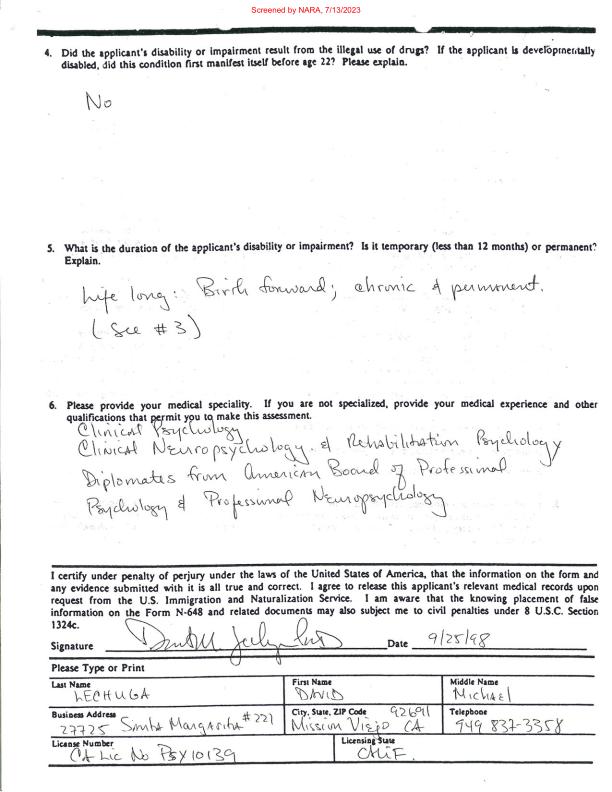 Screened by NARA, 7/13/2023
4. Did the applicant's disability or impairment result from the illegal use of drugs? If the applicant is developmentally
disabled, did this condition first manifest itself before age 22? Please explain.
No
5. What is the duration of the applicant's disability or impairment? Is it temporary (less than 12 months) or permanent?
Explain.
Life long: Birth forward; chronic & permanent.
(See #3)
6. Please provide your medical speciality. If you are not specialized, provide your medical experience and other
qualifications that permit you to make this assessment.
Clinical Psychology
Clinical Neuropsychology & Rehabilitation Psychology
Diplomates from American Board of Professional
Psychology & Professional Neuropsychology
I certify under penalty of perjury under the laws of the United States of America, that the information on the form and
any evidence submitted with it is all true and correct. I agree to release this applicant's relevant medical records upon
request from the U.S. Immigration and Naturalization Service. I am aware that the knowing placement of false
information on the Form N-648 and related documents may also subject me to civil penalties under 8 U.S.C. Section
1324c.
Signature Date 9/25/98
Please Type or Print
Last Name First Name Middle Name
LECHUGA DAVID Michael
Business Address City, State, ZIP Code 92691 Telephone
27725 Santa Margarita #221 Mission Viejo CA 949 837-3358
License Number Licensing State
CA Lic No PSY10139 CALIF.